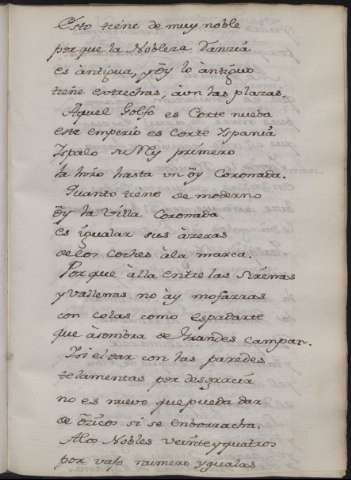 Esto tiene de muy noble
porque la Nobleza
es àntigua, y ÿ lo àntiguo
tiene estrechas, àun las plazas.
Aquel Golfo es Corte nueba
este emperio es Corte
su Rey primero
la hizo hasta un oy Coronada.
Quanto tiene de moderno
oy la Villa Coronada
es igualar sus àzeras
de los Coches àla marca.
Porque àlla entre las Sirenas
y vallenas no ày mofarras
con colas como espadarte
que àsombra de Grandes campan.
Y si el dar con las paredes
te lamentas por desgracia
no es nuevo que pueda dar
de òzicos si se emborracha.
A los Nobles veinte y quatros
por vaso numero yguales